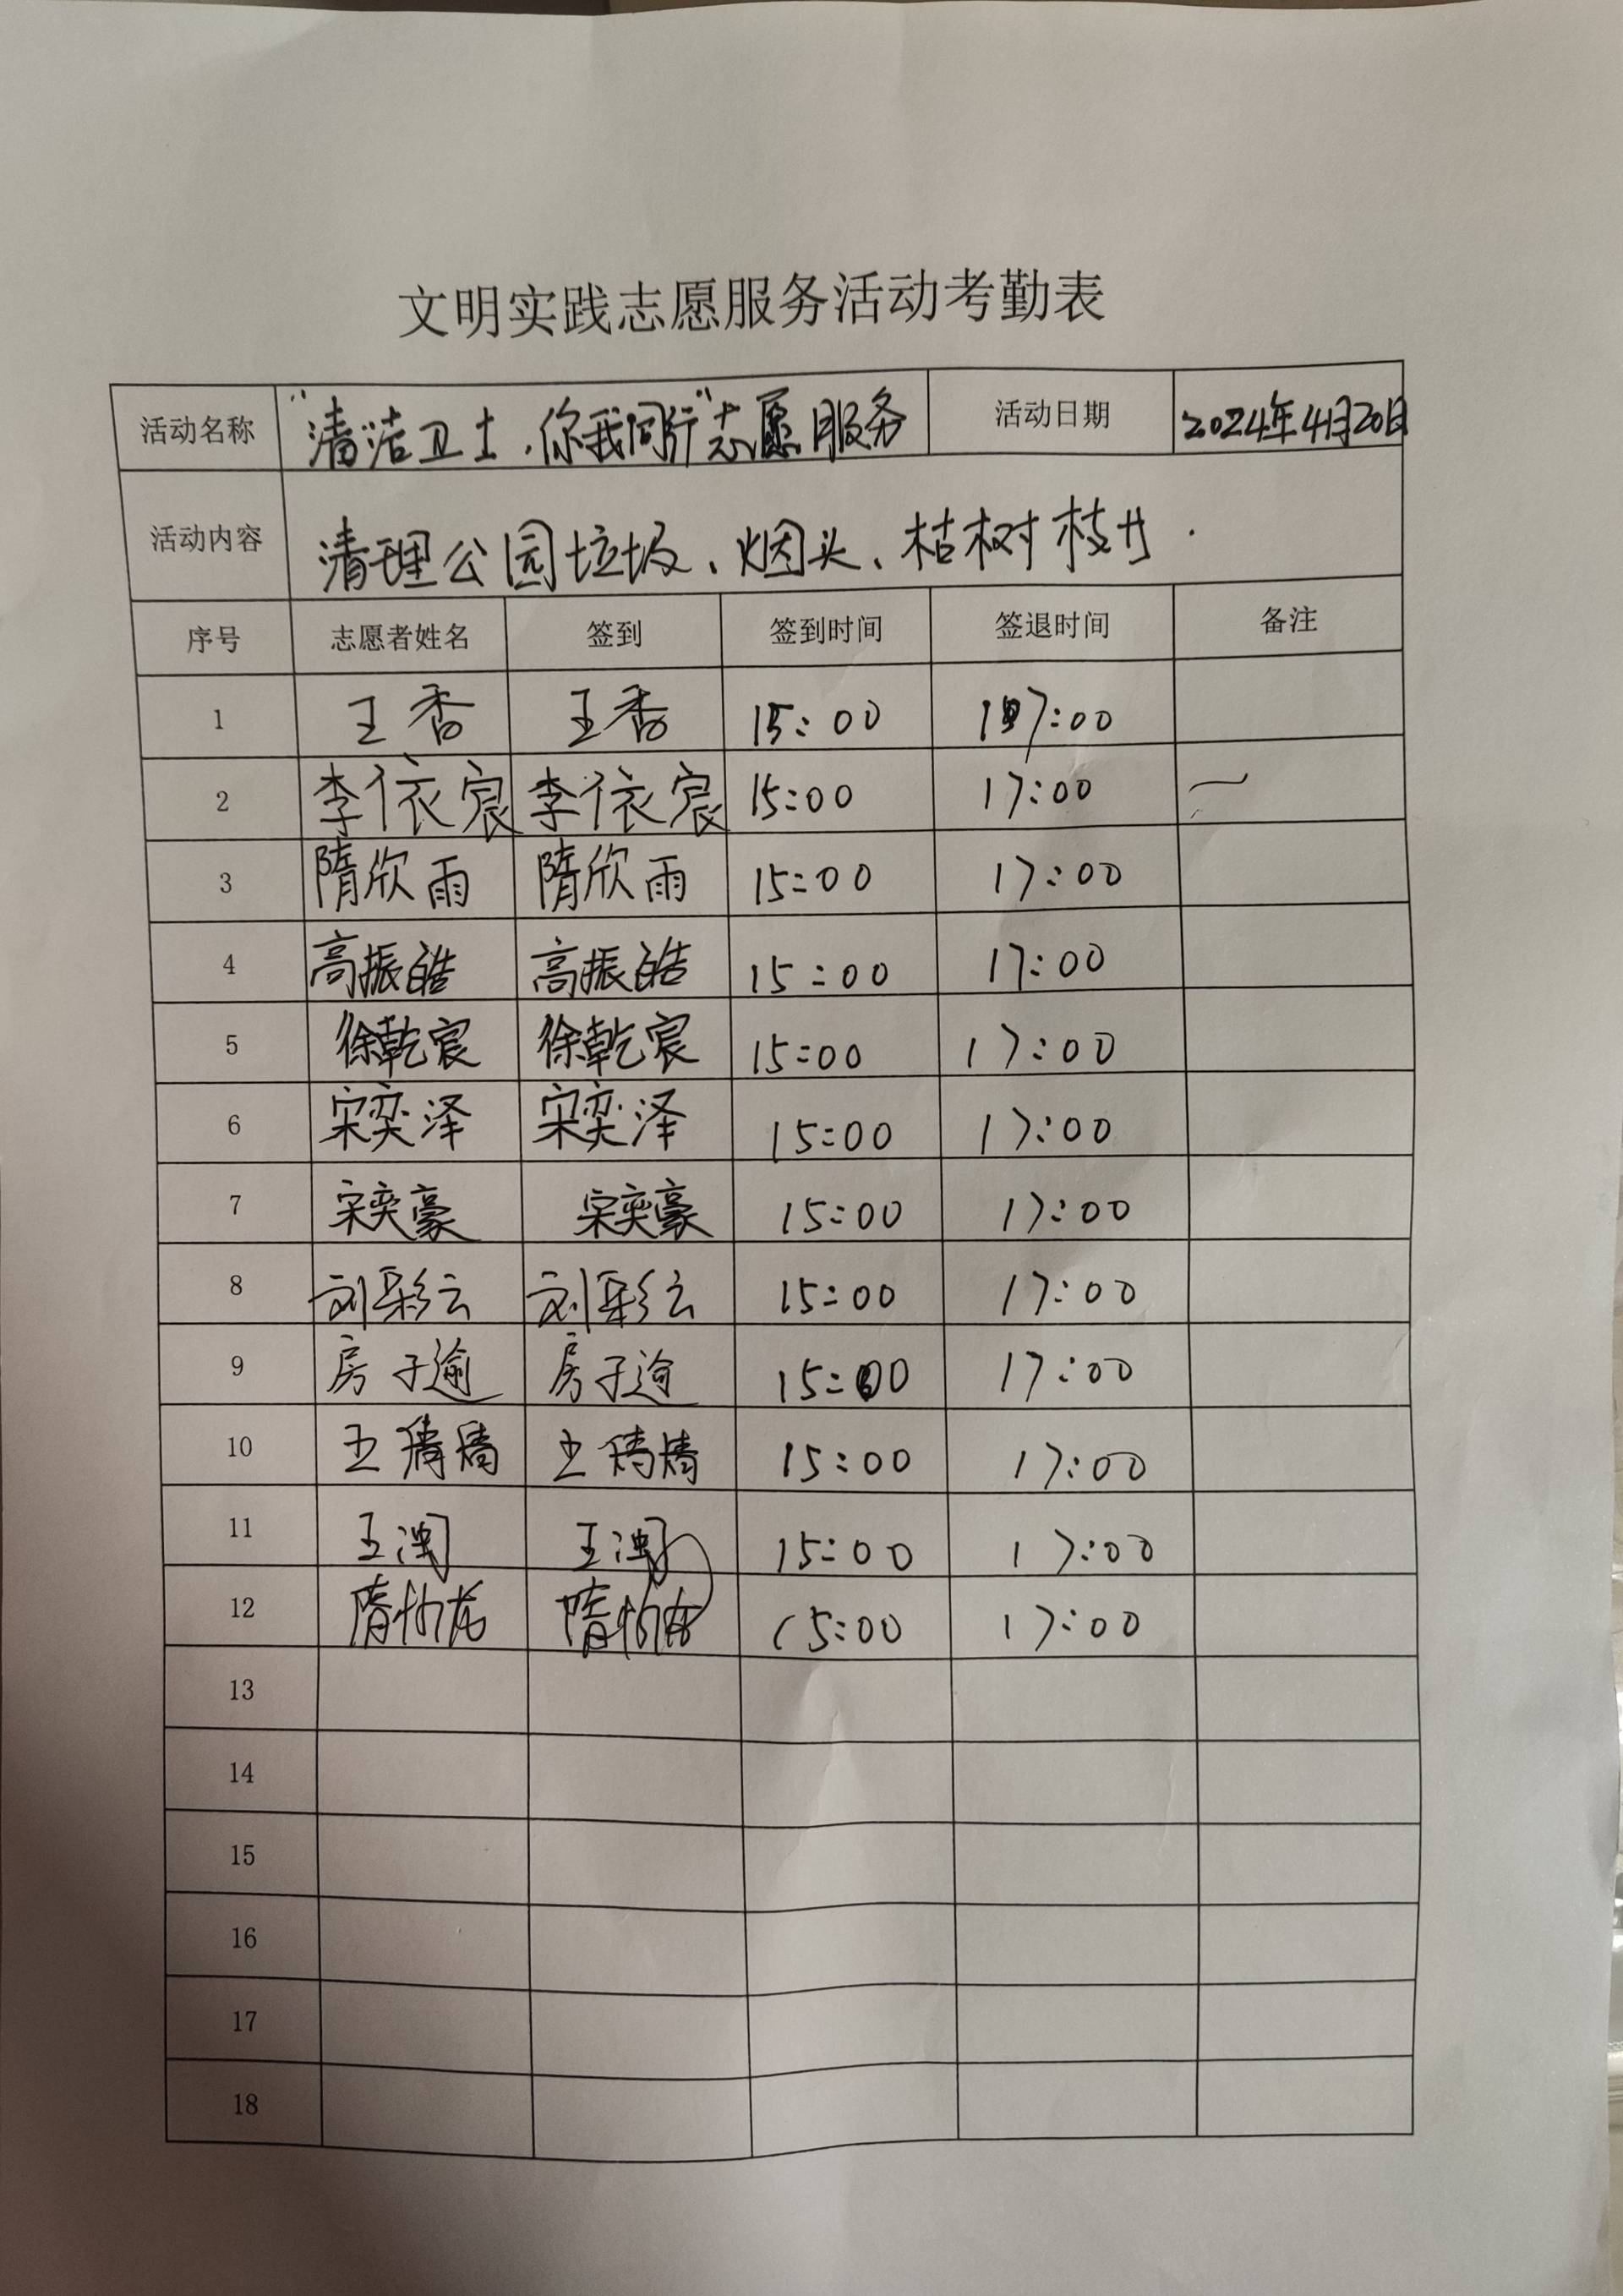 文明实践志愿服务活动考勤表
活动名称 “清洁卫士,你我同行”志愿服务 活动日期 2024年4月20日
活动内容 清理公园垃圾、烟头、枯树枝等.
序号 志愿者姓名 签到 签到时间 签退时间 备注
1 王香 王香 15:00 17:00
2 李依宸 李依宸 15:00 17:00
3 隋欣雨 隋欣雨 15:00 17:00
4 高振皓 高振皓 15:00 17:00
5 徐乾宸 徐乾宸 15:00 17:00
6 宋奕泽 宋奕泽 15:00 17:00
7 宋奕豪 宋奕豪 15:00 17:00
8 刘彩云 刘彩云 15:00 17:00
9 房子逾 房子逾 15:00 17:00
10 王倩倩 王倩倩 15:00 17:00
11 王 王 15:00 17:00
12 隋 隋 15:00 17:00
13
14
15
16
17
18